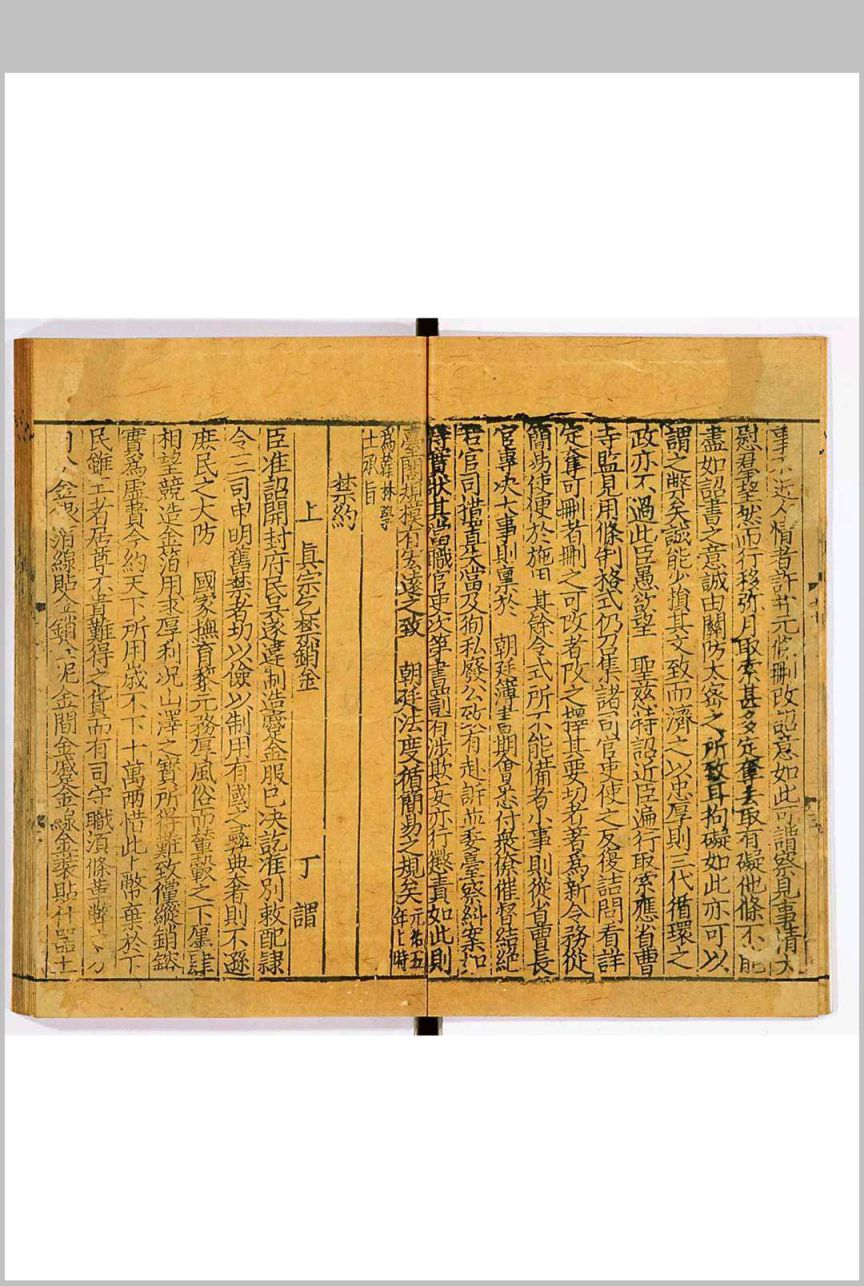 事不近人情者許并元條刪改詔意如此可謂察見事情大
慰羣望然而行移弥月取索甚多定奪去取有礙他條不能
盡如詔書之意誠由關防太密之所致耳拘礙如此亦可以
謂之弊矣誠能少損其文致而濟之以忠厚則三代循環之
政亦不過此臣愚欲望 聖慈特詔近臣遍行取索應省曹
寺監見用條制格式仍召集諸司官吏使之反復詰問看詳
定奪可刪者刪之可改者改之擇其要切者著爲新令務從
簡易使便於施用其餘令式所不能備者小事則從省曹長
官專决大事則稟於 朝廷簿書期會悉付衆僚催督結絕
若官司措置失當及狥私廢公故有赴訴並委臺察糾案如
得實狀其當職官吏次第書罰有涉欺妄亦行懲責如此則
臺閣規模有宏遠之致 朝廷法度循簡易之規矣元祐五年上時
爲翰林學士承旨
禁約
上 真宗乞禁銷金 丁謂
臣准詔開封府民吳遂違制造蹙金服已决訖准別敕配隸
令三司申明舊禁者切以儉以制用有國之彝典奢則不遜
庶民之大防 國家撫育黎元務厚風俗而輦轂之下廛肆
相望競造金箔用求厚利况山澤之寶所得難致儻縱銷鎔
實爲虛費今約天下所用歲不下十萬兩惜此上幣棄於下
民雖王者居尊不貴難得之貨而有司守職湏條革弊之方
金銀線貼金銷金泥金間金蹙金線金裝貼什器土